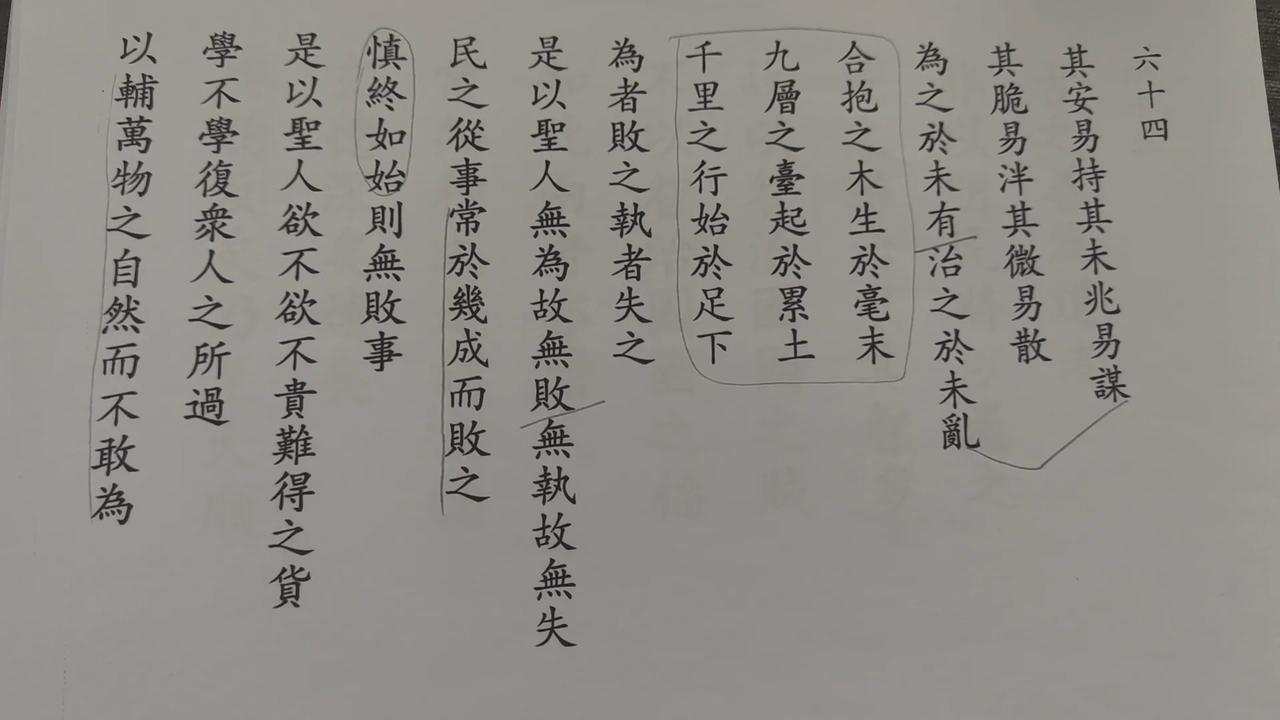 六十四
其安易持其未兆易謀
其脆易泮其微易散
為之於未有治之於未亂
合抱之木生於毫末
九層之臺起於累土
千里之行始於足下
為者敗之執者失之
是以聖人無為故無敗無執故無失
民之從事常於幾成而敗之
慎終如始則無敗事
是以聖人欲不欲不貴難得之貨
學不學復衆人之所過
以輔萬物之自然而不敢為